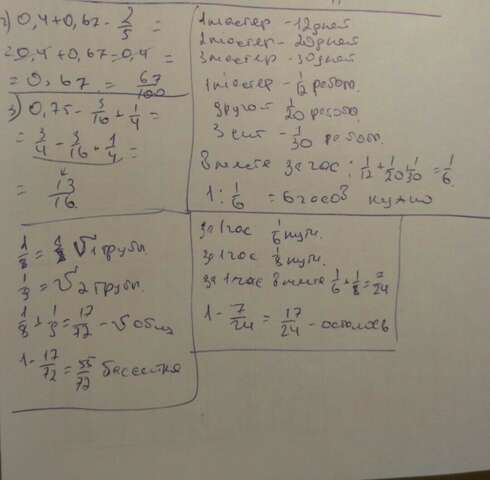 2) 0,4+0,67-2/5=
=0,4+0,67-0,4=
=0,67=67/100
3) 0,75-3/16+1/4=
=3/4-3/16+1/4=
=13/16.
1 мастер - 12 дней
2 мастер - 20 дней
3 мастер - 30 дней
1 мастер - 1/12 работы.
другой 1/20 работы.
3 - 1/30 работы.
вместе за час: 1/12+1/20+1/30=1/6.
1:1/6=6 часов нужно
1/8= V 1 трубы.
1/9=V 2 трубы.
1/8+1/9=17/72-V общ
1-17/72=55/72 бассейна
за 1 час 1/6 пути.
за 1 час 1/8 пути.
за 1 час вместе 1/6+1/8=7/24
1-7/24=17/24-осталось